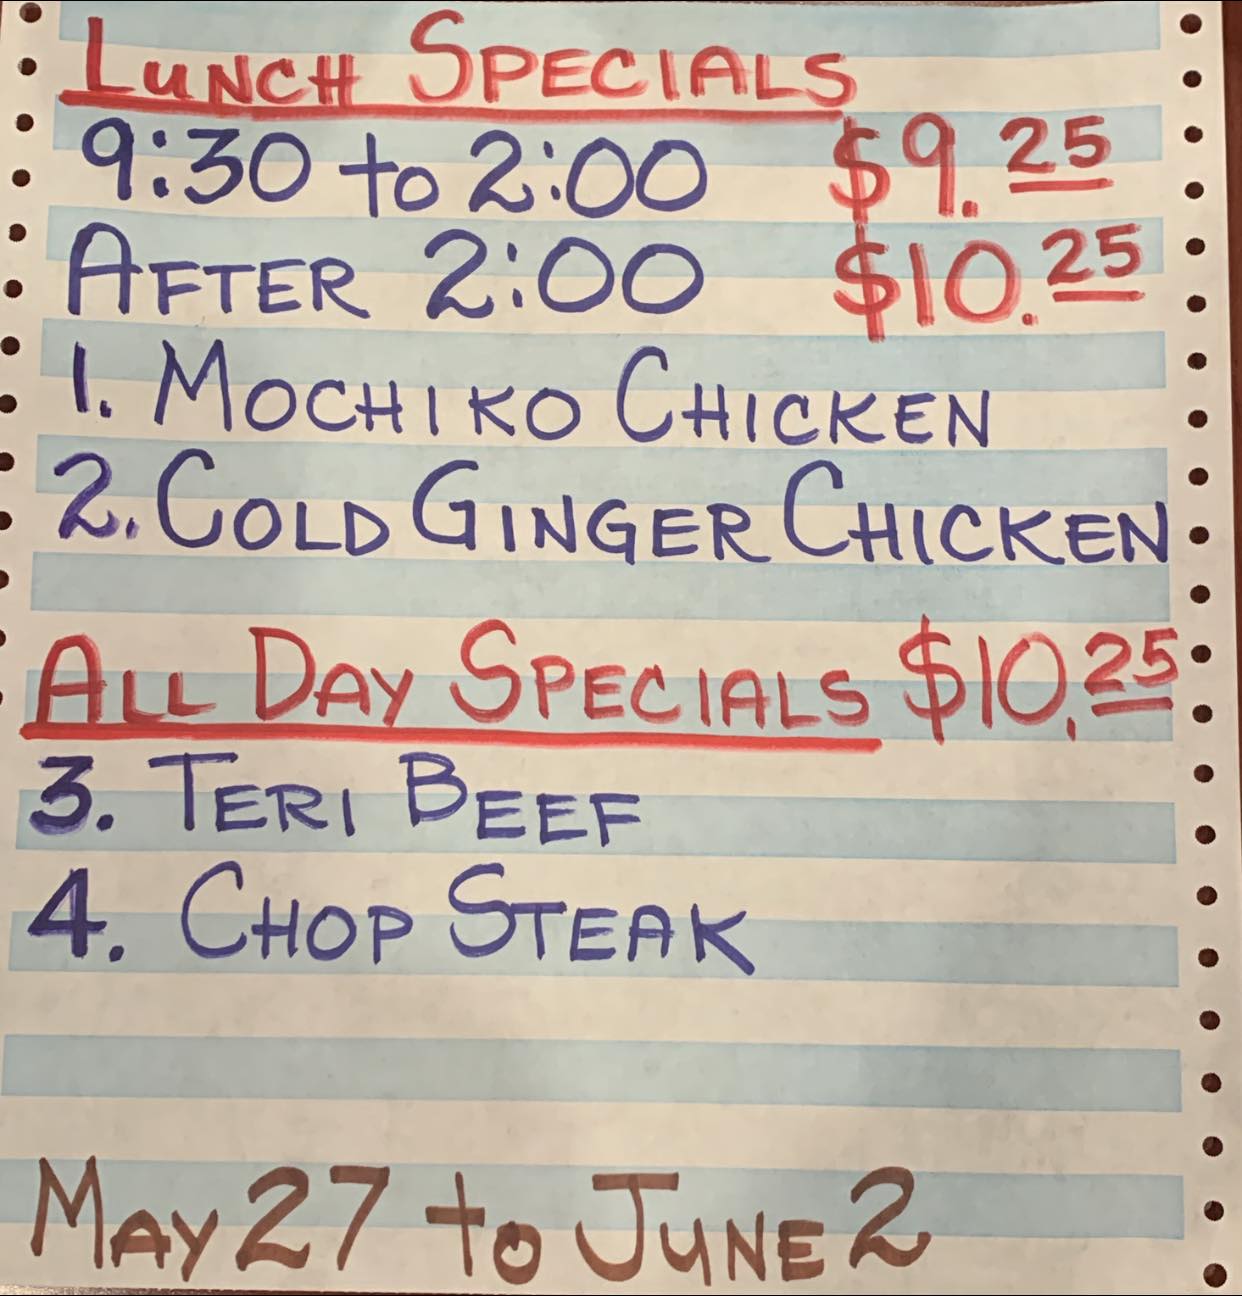 LUNCH SPECIALS
9:30 to 2:00 $9.25
AFTER 2:00 $10.25
1. MOCHIKO CHICKEN
2. COLD GINGER CHICKEN
ALL DAY SPECIALS $10.25
3. TERI BEEF
4. CHOP STEAK
MAY 27 to JUNE 2